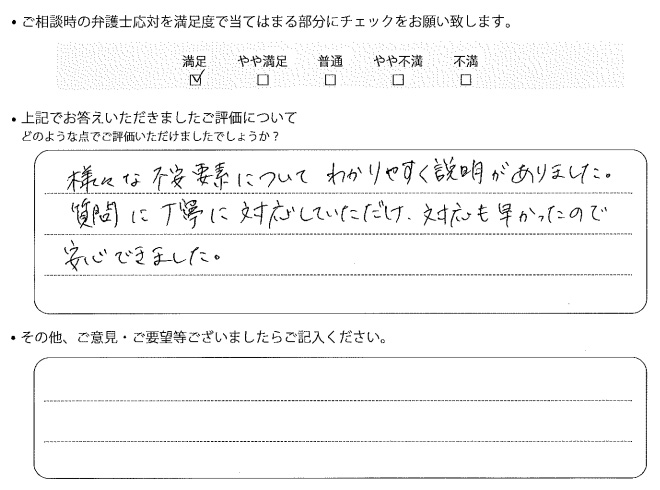 ・ご相談時の弁護士応対を満足度で当てはまる部分にチェックをお願い致します。
満足 やや満足 普通 やや不満 不満
☑ □ □ □ □
・上記でお答えいただきましたご評価について
どのような点でご評価いただけましたでしょうか？
様々な不安要素についてわかりやすく説明がありました。
質問に丁寧に対応していただけ、対応も早かったので
安心できました。
・その他、ご意見・ご要望等ございましたらご記入ください。